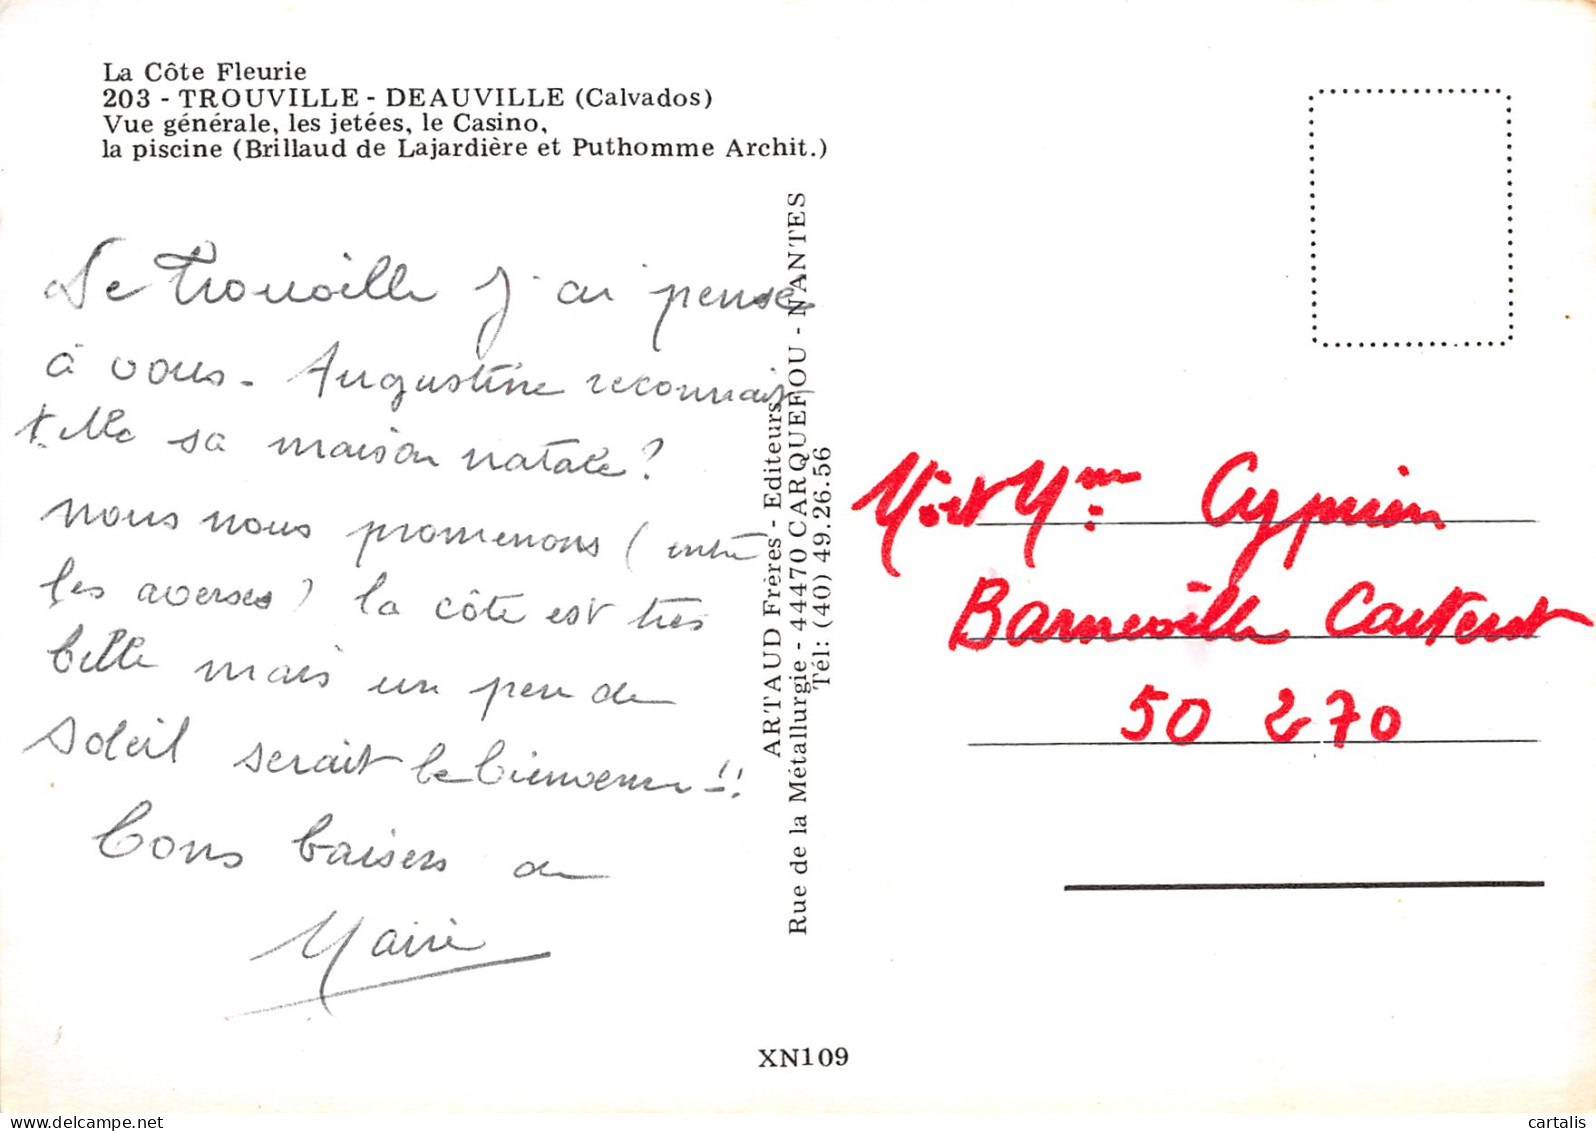 La Côte Fleurie
203 - TROUVILLE - DEAUVILLE (Calvados)
Vue générale, les jetées, le Casino,
la piscine (Brillaud de Lajardière et Puthomme Archit.)
De Trouville j'ai pensé
à vous. Augustine reconnait
t.elle sa maison natale?
nous nous promenons (entre
les averses) la côte est très
belle mais un peu de
soleil serait le bienvenu !!
Bons baisers de
Marie
ARTAUD Frères - Editeurs
Rue de la Métallurgie - 44470 CARQUEFOU - NANTES
Tél: (40) 49.26.56
Mr et Mme Cyprien
Barneville Carteret
50 270
XN109
cartalis